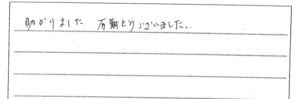 助かりました 有難とうございました.